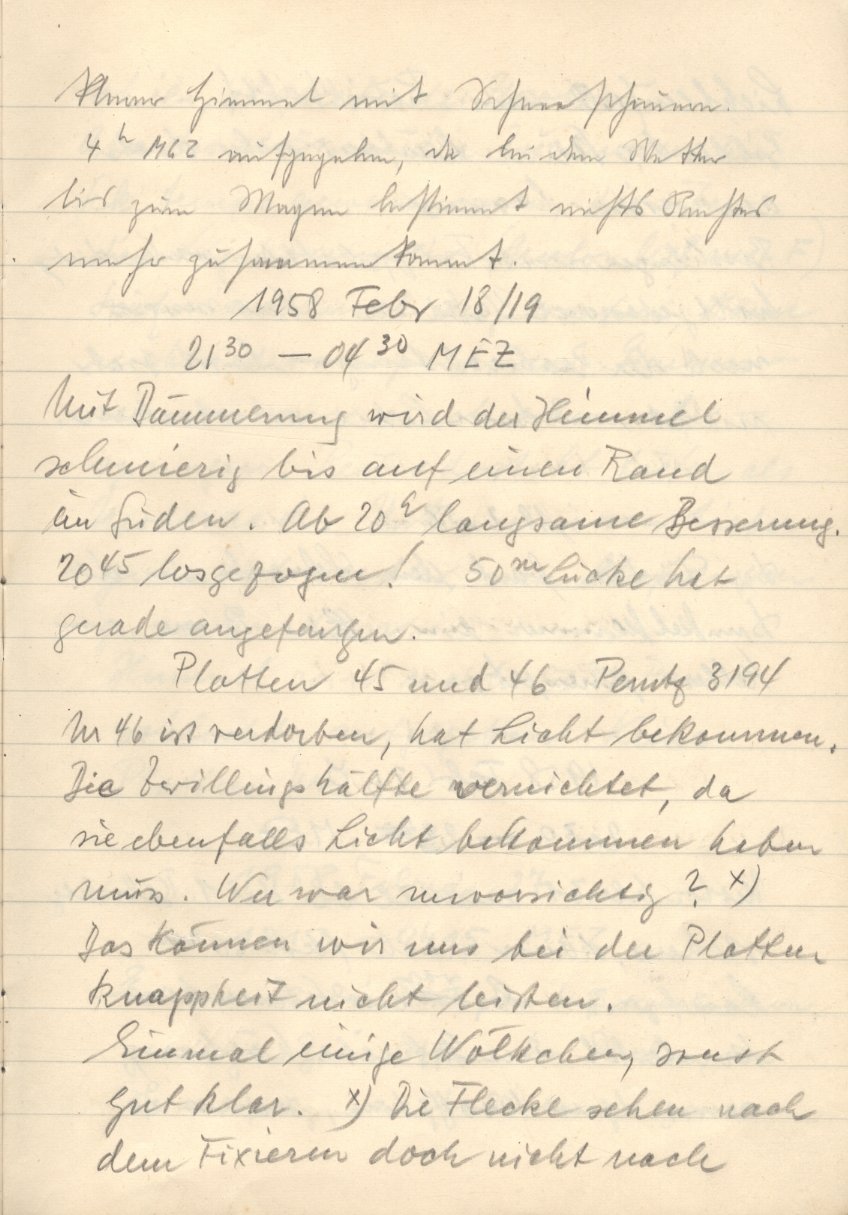 klarer Himmel mit Schneeschauern.
4h MEZ aufgegeben, da bei dem Wetter
bis zum Morgen bestimmt nichts Rechtes
mehr zusammenkommt.
1958 Febr 18/19
21 30 — 04 30 MEZ
Mit Dämmerung wird der Himmel
schmierig bis auf einen Rand
im Süden. Ab 20h langsame Besserung.
20 45 losgezogen! 50m Lücke hat
gerade angefangen.
Platten 45 und 46 Perutz 3194
Nr 46 ist verdorben, hat Licht bekommen.
Die Zwillingshälfte vernichtet, da
sie ebenfalls Licht bekommen haben
muss. Wer war unvorsichtig? x)
Das können wir uns bei der Platten
knappheit nicht leisten.
Einmal einige Wölkchen, sonst
gut klar. x) Die Flecke sehen nach
dem Fixieren doch nicht nach